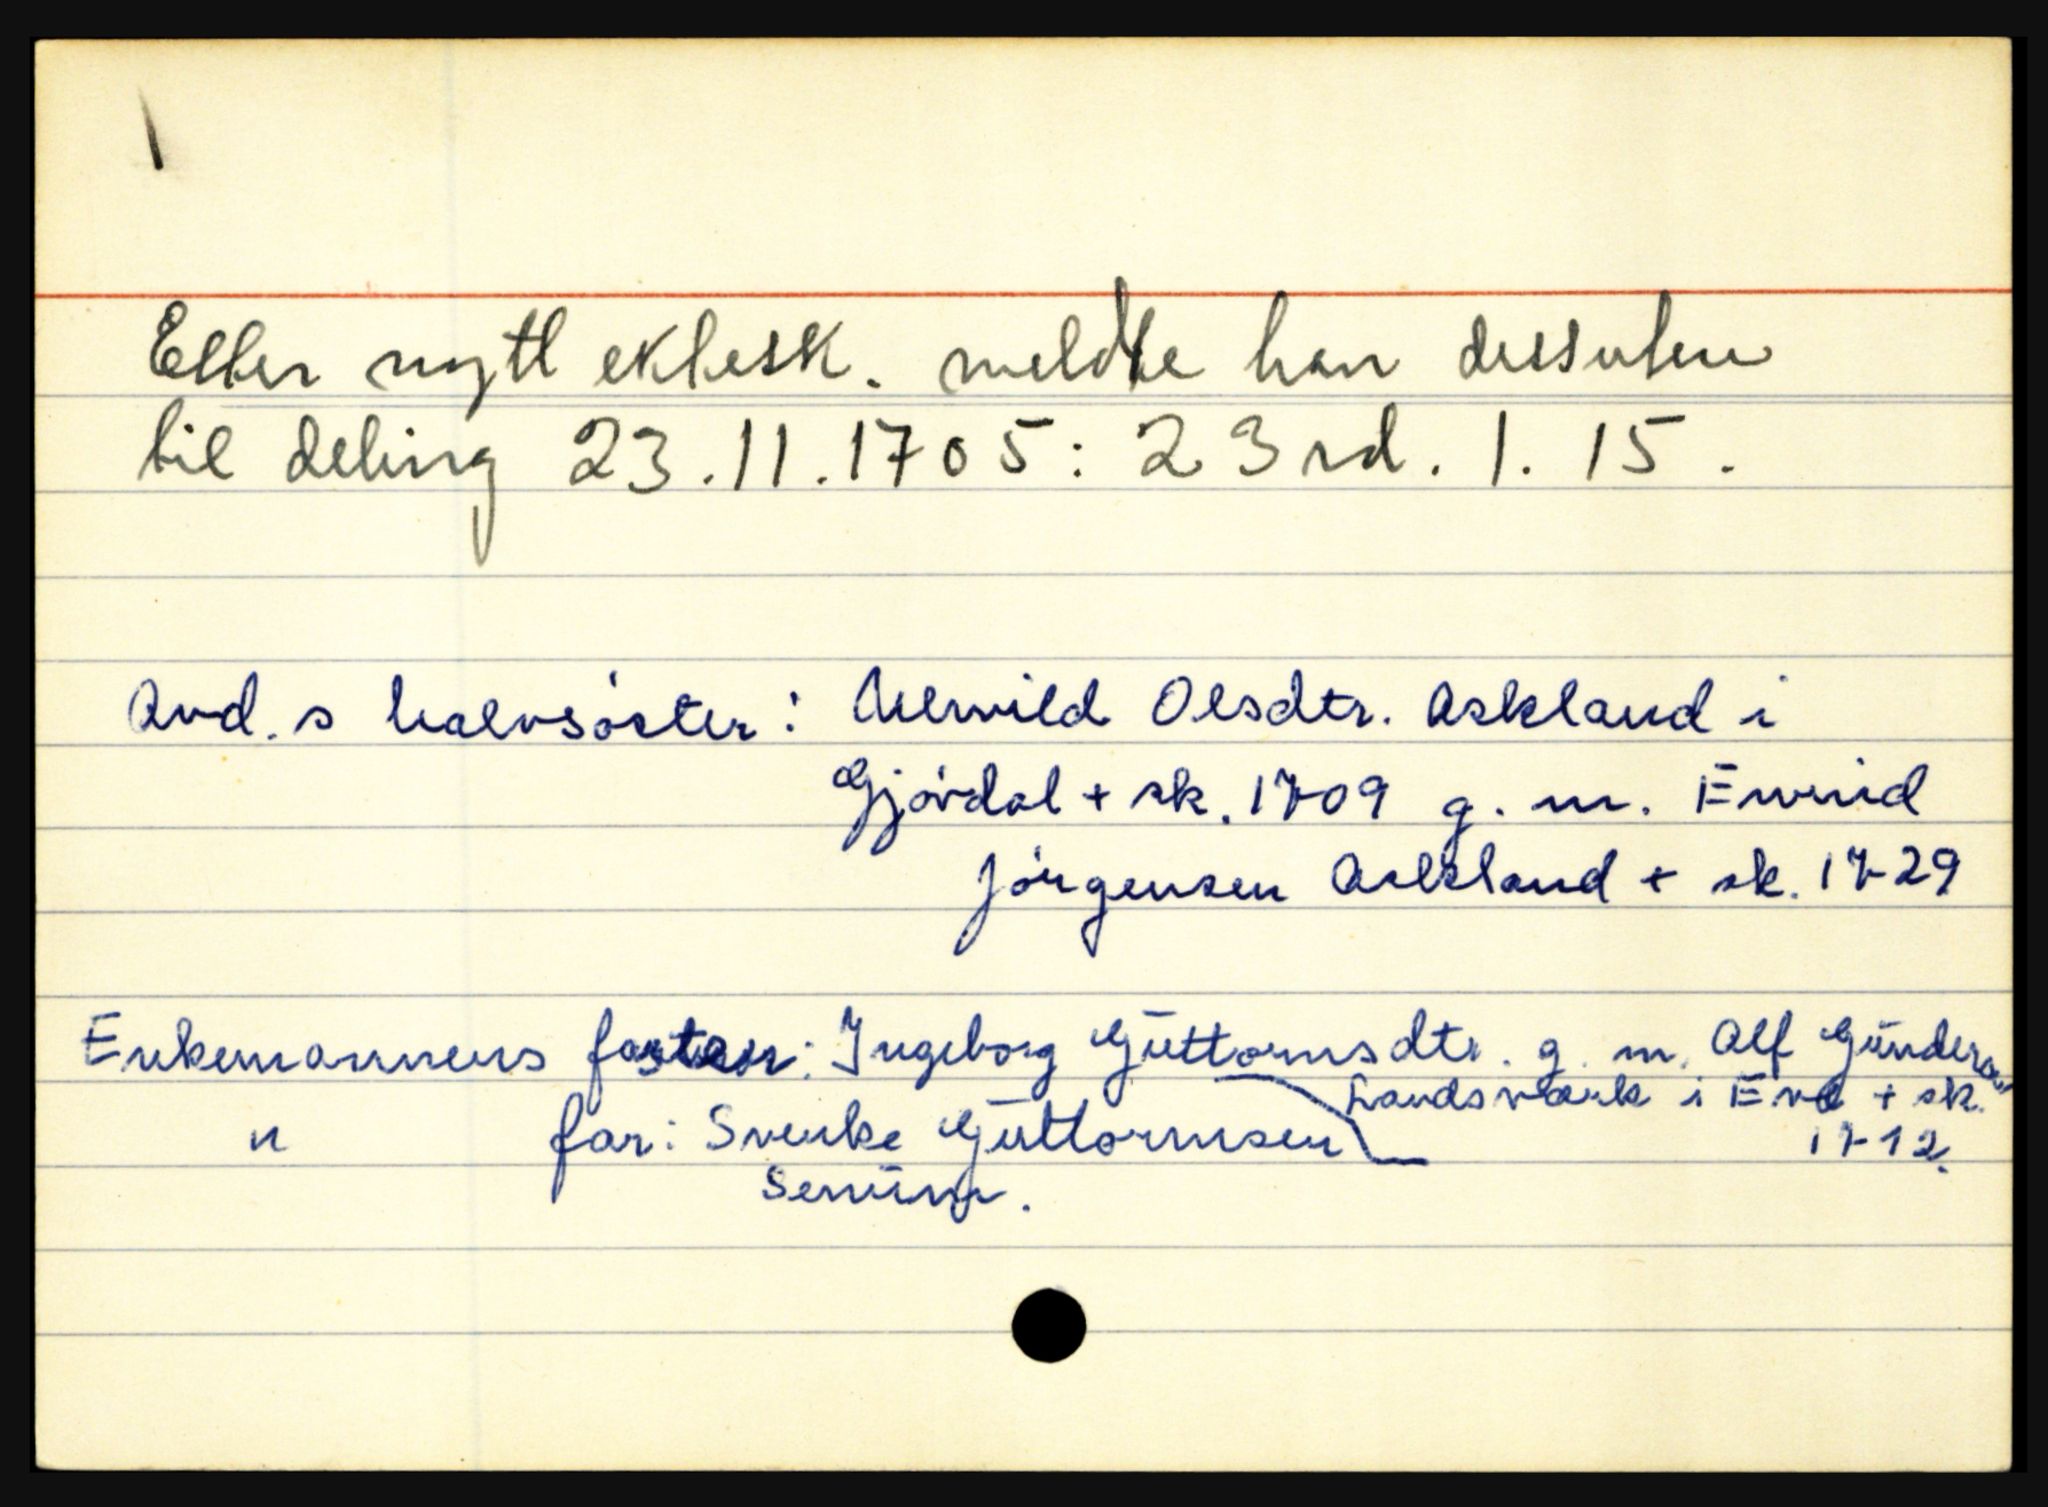 Etter nytt ektesk. meldte han dessuten
til deling 23.11.1705: 23 rd. 1. 15.
Avd. s halvsöster: Olsdtr. Askland i
Gjövdal + sk. 1709 g. m. Ewind
Jörgensen Askland + sk. 1729
Enkemannens faster: Ingeborg Guttormsdtr. g. m. Alf Gunders
Landsverk i + sk.
" far: Svenke Guttormsen 1712.
Senum.